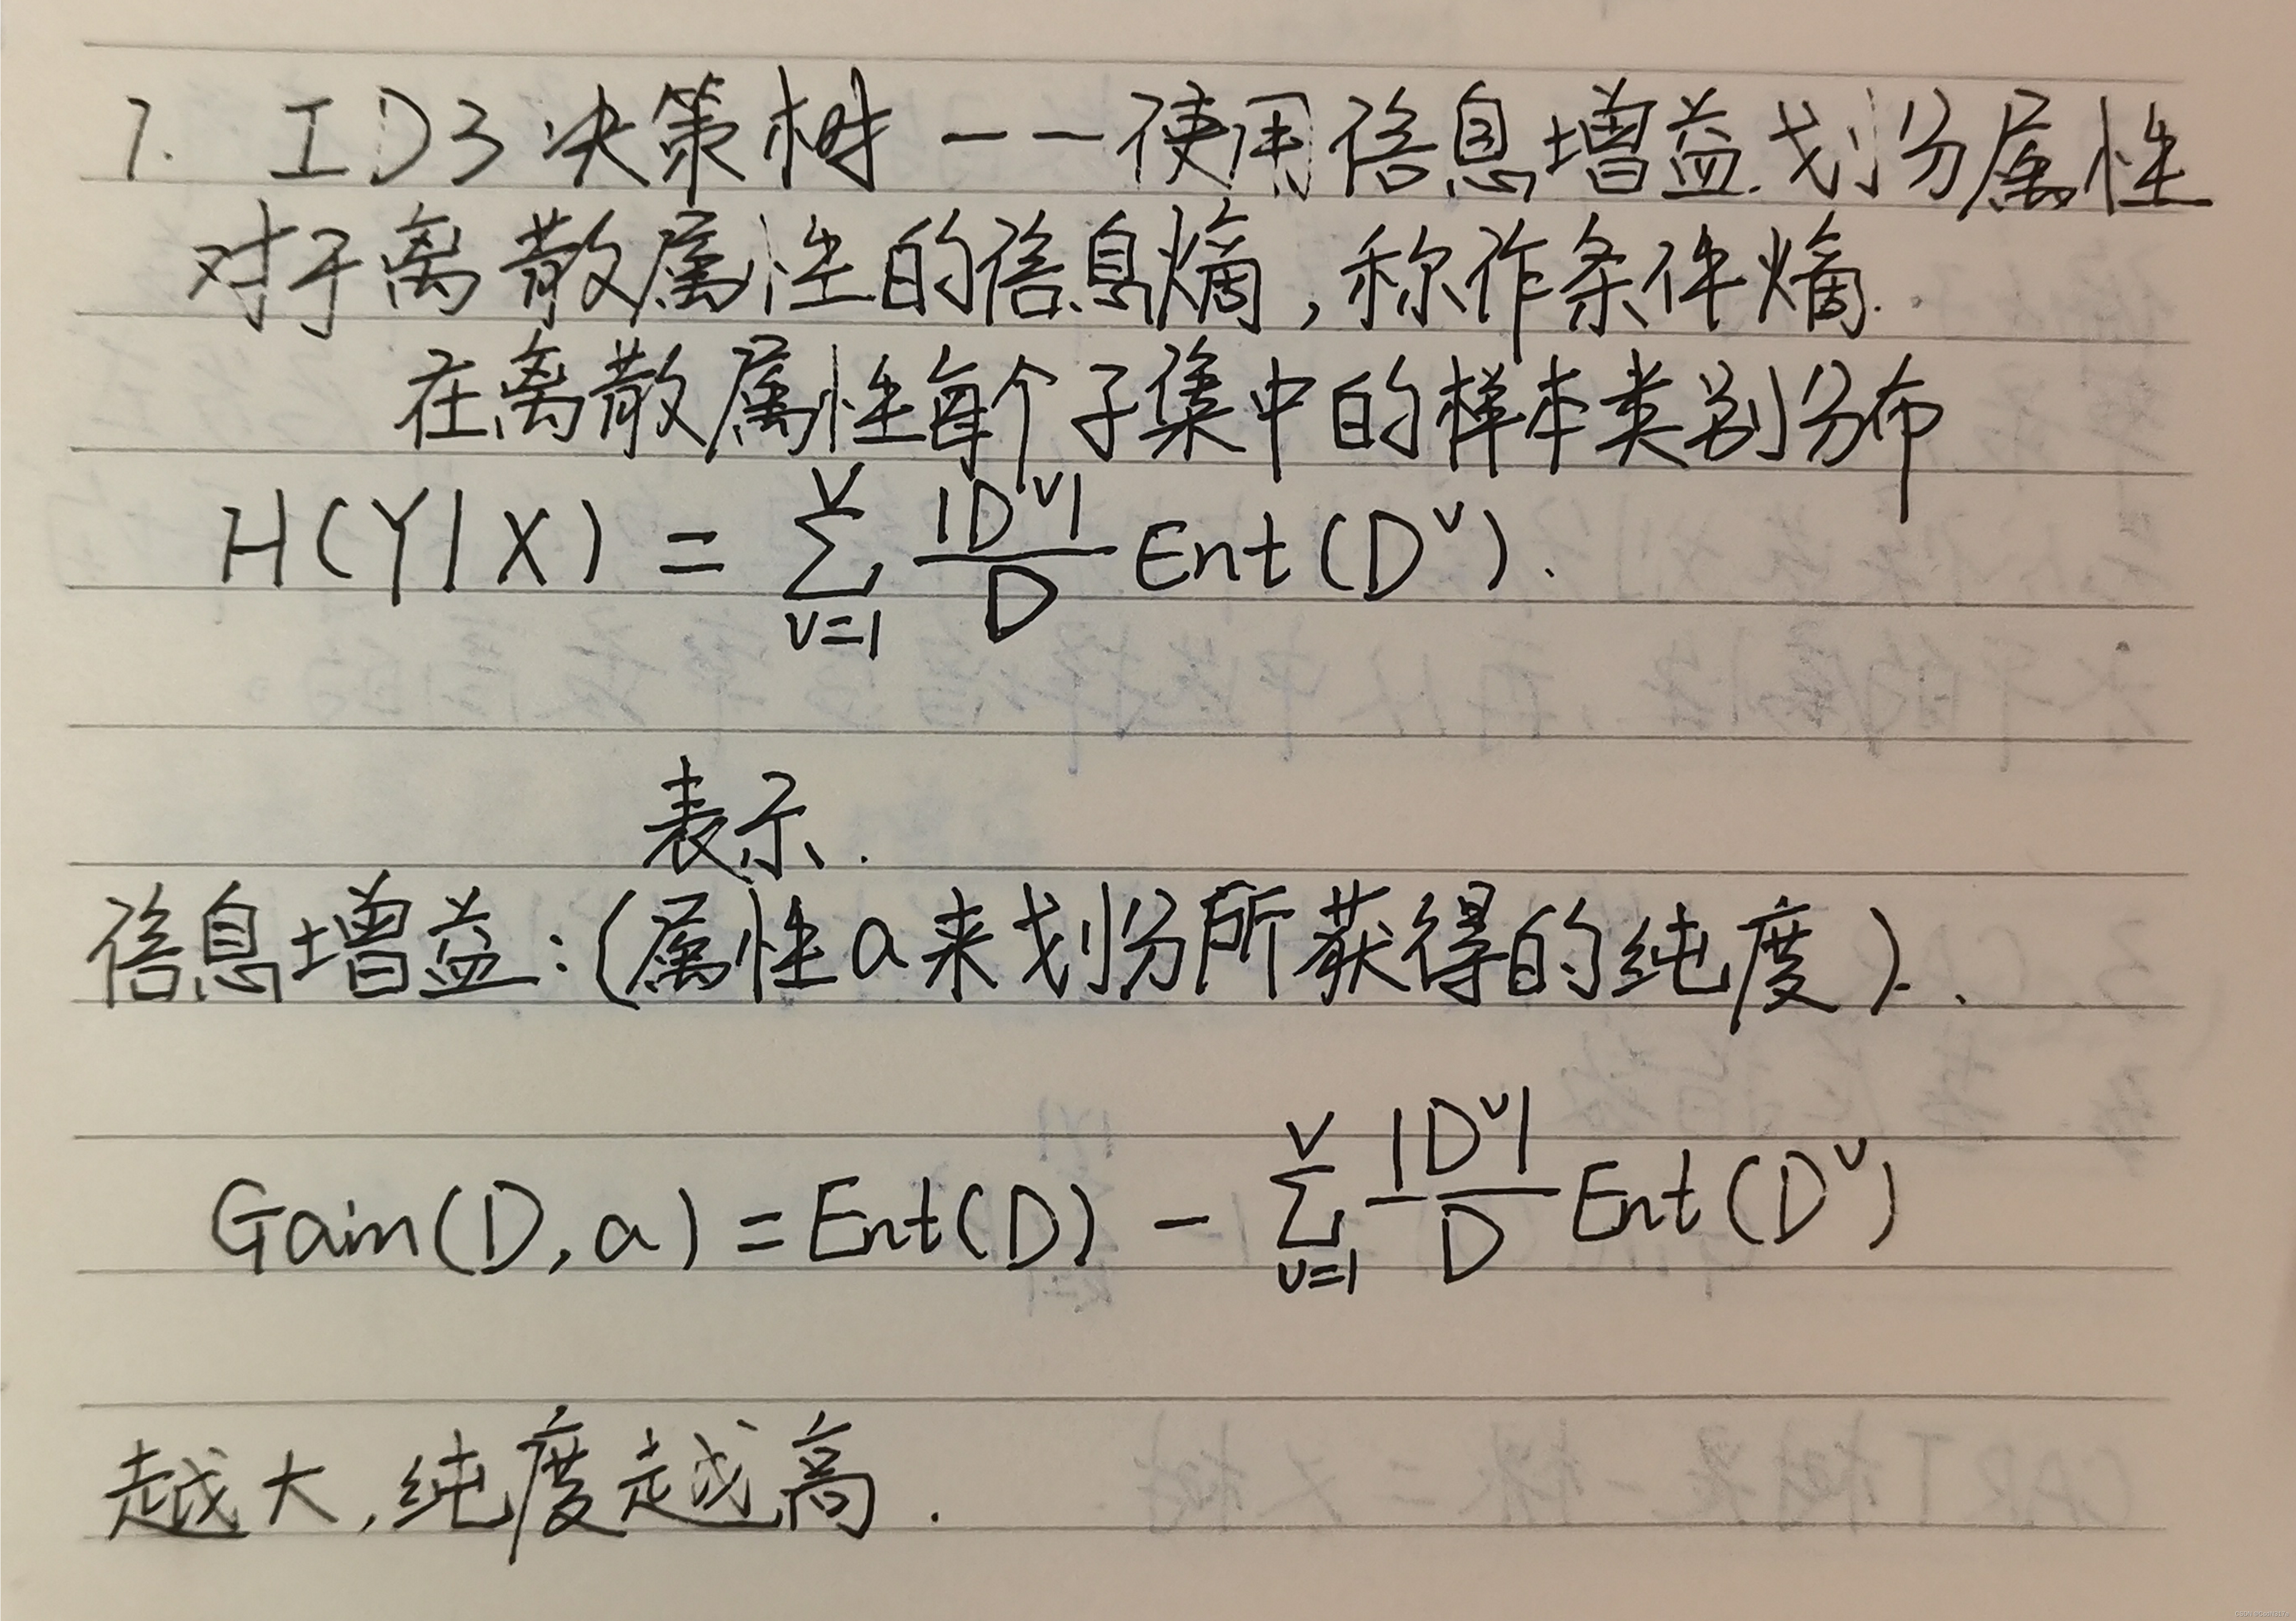 1. ID3 决策树 —— 使用信息增益划分属性
对于离散属性的信息熵,称作条件熵.
在离散属性每个子集中的样本类别分布
H(Y|X) = ∑_{v=1}^{V} |D^v|/D Ent(D^v).
表示.
信息增益:(属性a来划分所获得的纯度).
Gain(D,a) = Ent(D) - ∑_{v=1}^{V} |D^v|/D Ent(D^v)
越大,纯度越高.